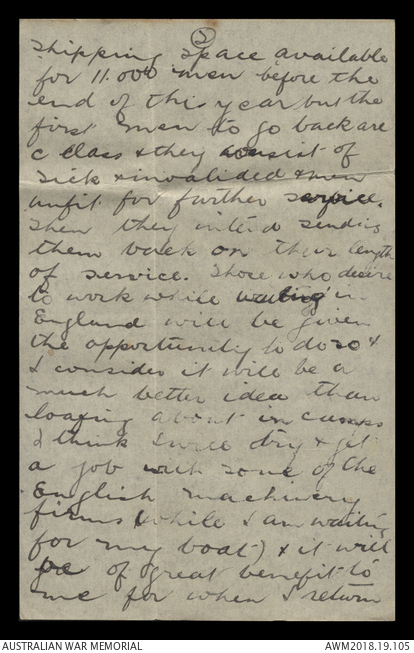 5
shipping space available
for 11.000 men before the
end of this year but the
first men to go back are
c class & they consist of
sick & invalided & men
unfit for further service.
Then they intend sending
them back on their length
of service. Those who desire
to work while waiting in
England will be given
the opportunity to do so &
I consider it will be a
much better idea than
loafing about in camps
I think I will try & get
a job with some of the
English machinery
firms (while I am waiting
for my boat) & it will
be of great benefit to
me for when I return
AUSTRALIAN WAR MEMORIAL
AWM2018.19.105